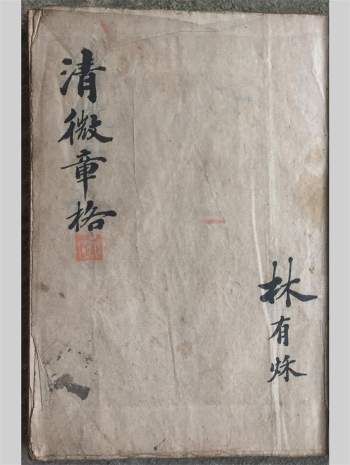 清微章格
林有烁